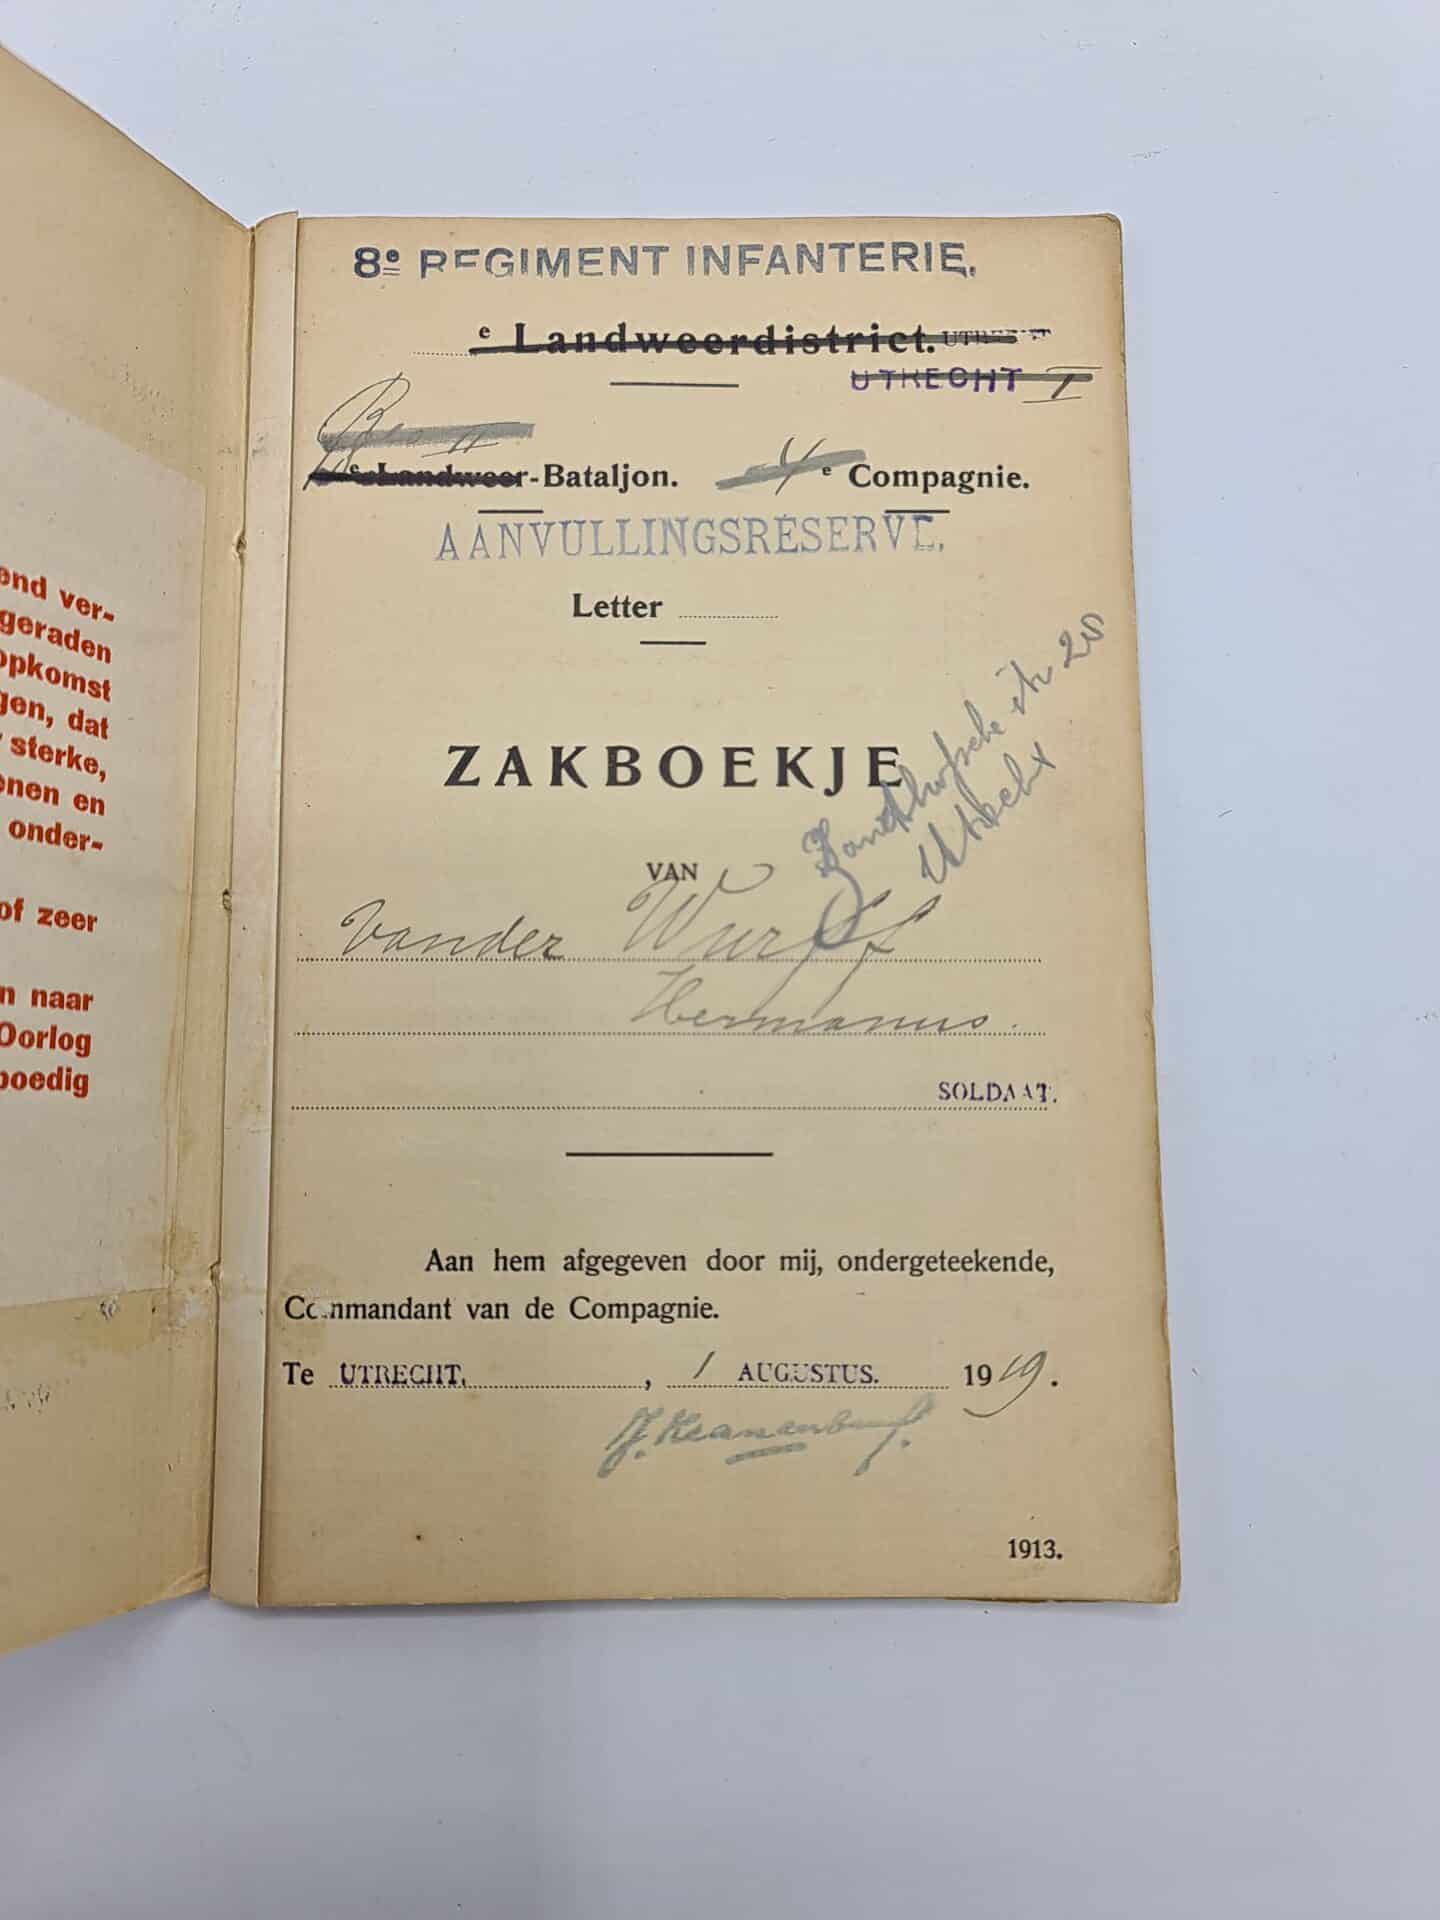 end ver-
geraden
opkomst
gen, dat
sterke,
enen en
onder-
of zeer
n naar
Oorlog
poedig
8e REGIMENT INFANTERIE.
e Landweerdistrict. UTRECHT
UTRECHT I
Res II
e Landweer-Bataljon. 4e Compagnie.
AANVULLINGSRESERVE.
Letter
ZAKBOEKJE
Utrecht
VAN
van der Wurff
Hermanus.
SOLDAAT.
Aan hem afgegeven door mij, ondergeteekende,
Commandant van de Compagnie.
Te UTRECHT, , 1 AUGUSTUS. 1919.
1913.